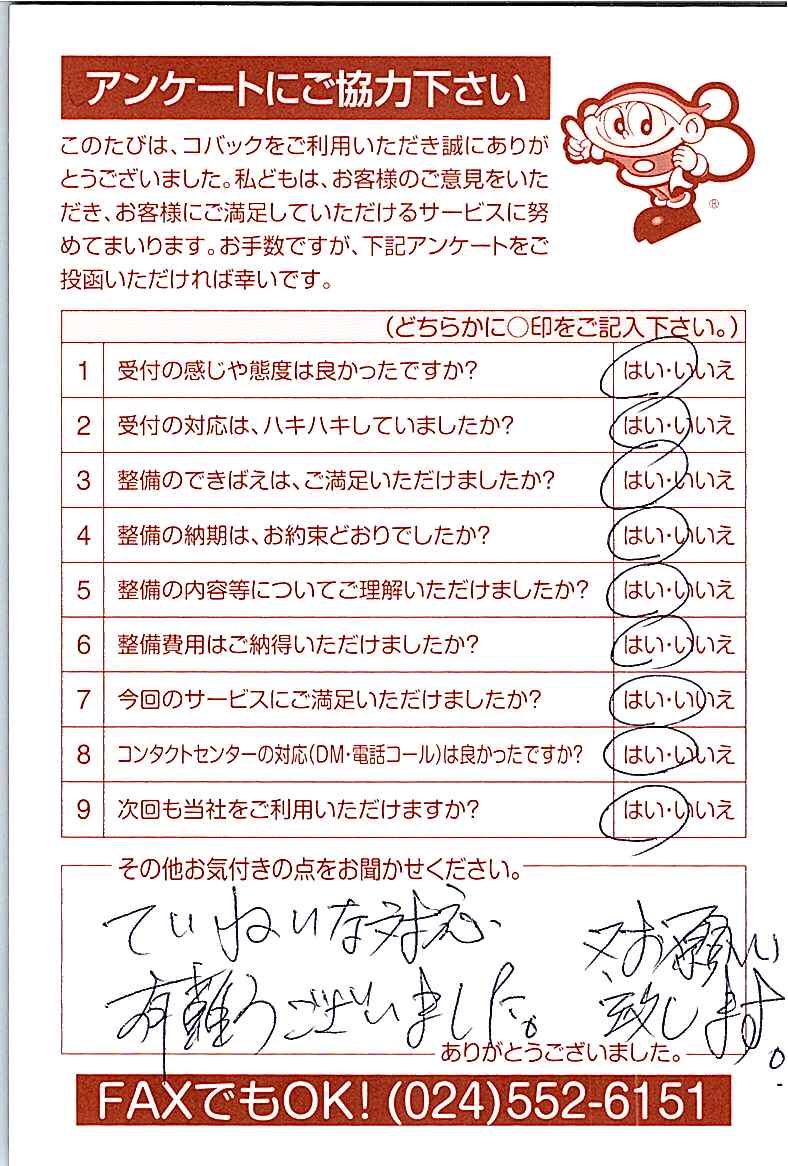 アンケートにご協力下さい
このたびは、コバックをご利用いただき誠にありが
とうございました。私どもは、お客様のご意見をいた
だき、お客様にご満足していただけるサービスに努
めてまいります。お手数ですが、下記アンケートをご
投函いただければ幸いです。
®
(どちらかに○印をご記入下さい。)
1 受付の感じや態度は良かったですか? はい・いいえ
2 受付の対応は、ハキハキしていましたか? はい・いいえ
3 整備のできばえは、ご満足いただけましたか? はい・いいえ
4 整備の納期は、お約束どおりでしたか? はい・いいえ
5 整備の内容等についてご理解いただけましたか? はい・いいえ
6 整備費用はご納得いただけましたか? はい・いいえ
7 今回のサービスにご満足いただけましたか? はい・いいえ
8 コンタクトセンターの対応(DM・電話コール)は良かったですか? はい・いいえ
9 次回も当社をご利用いただけますか? はい・いいえ
その他お気付きの点をお聞かせください。
ていねいな対応、
有難うございました。
又お願い
致します。
ありがとうございました。
FAXでもOK! (024)552-6151